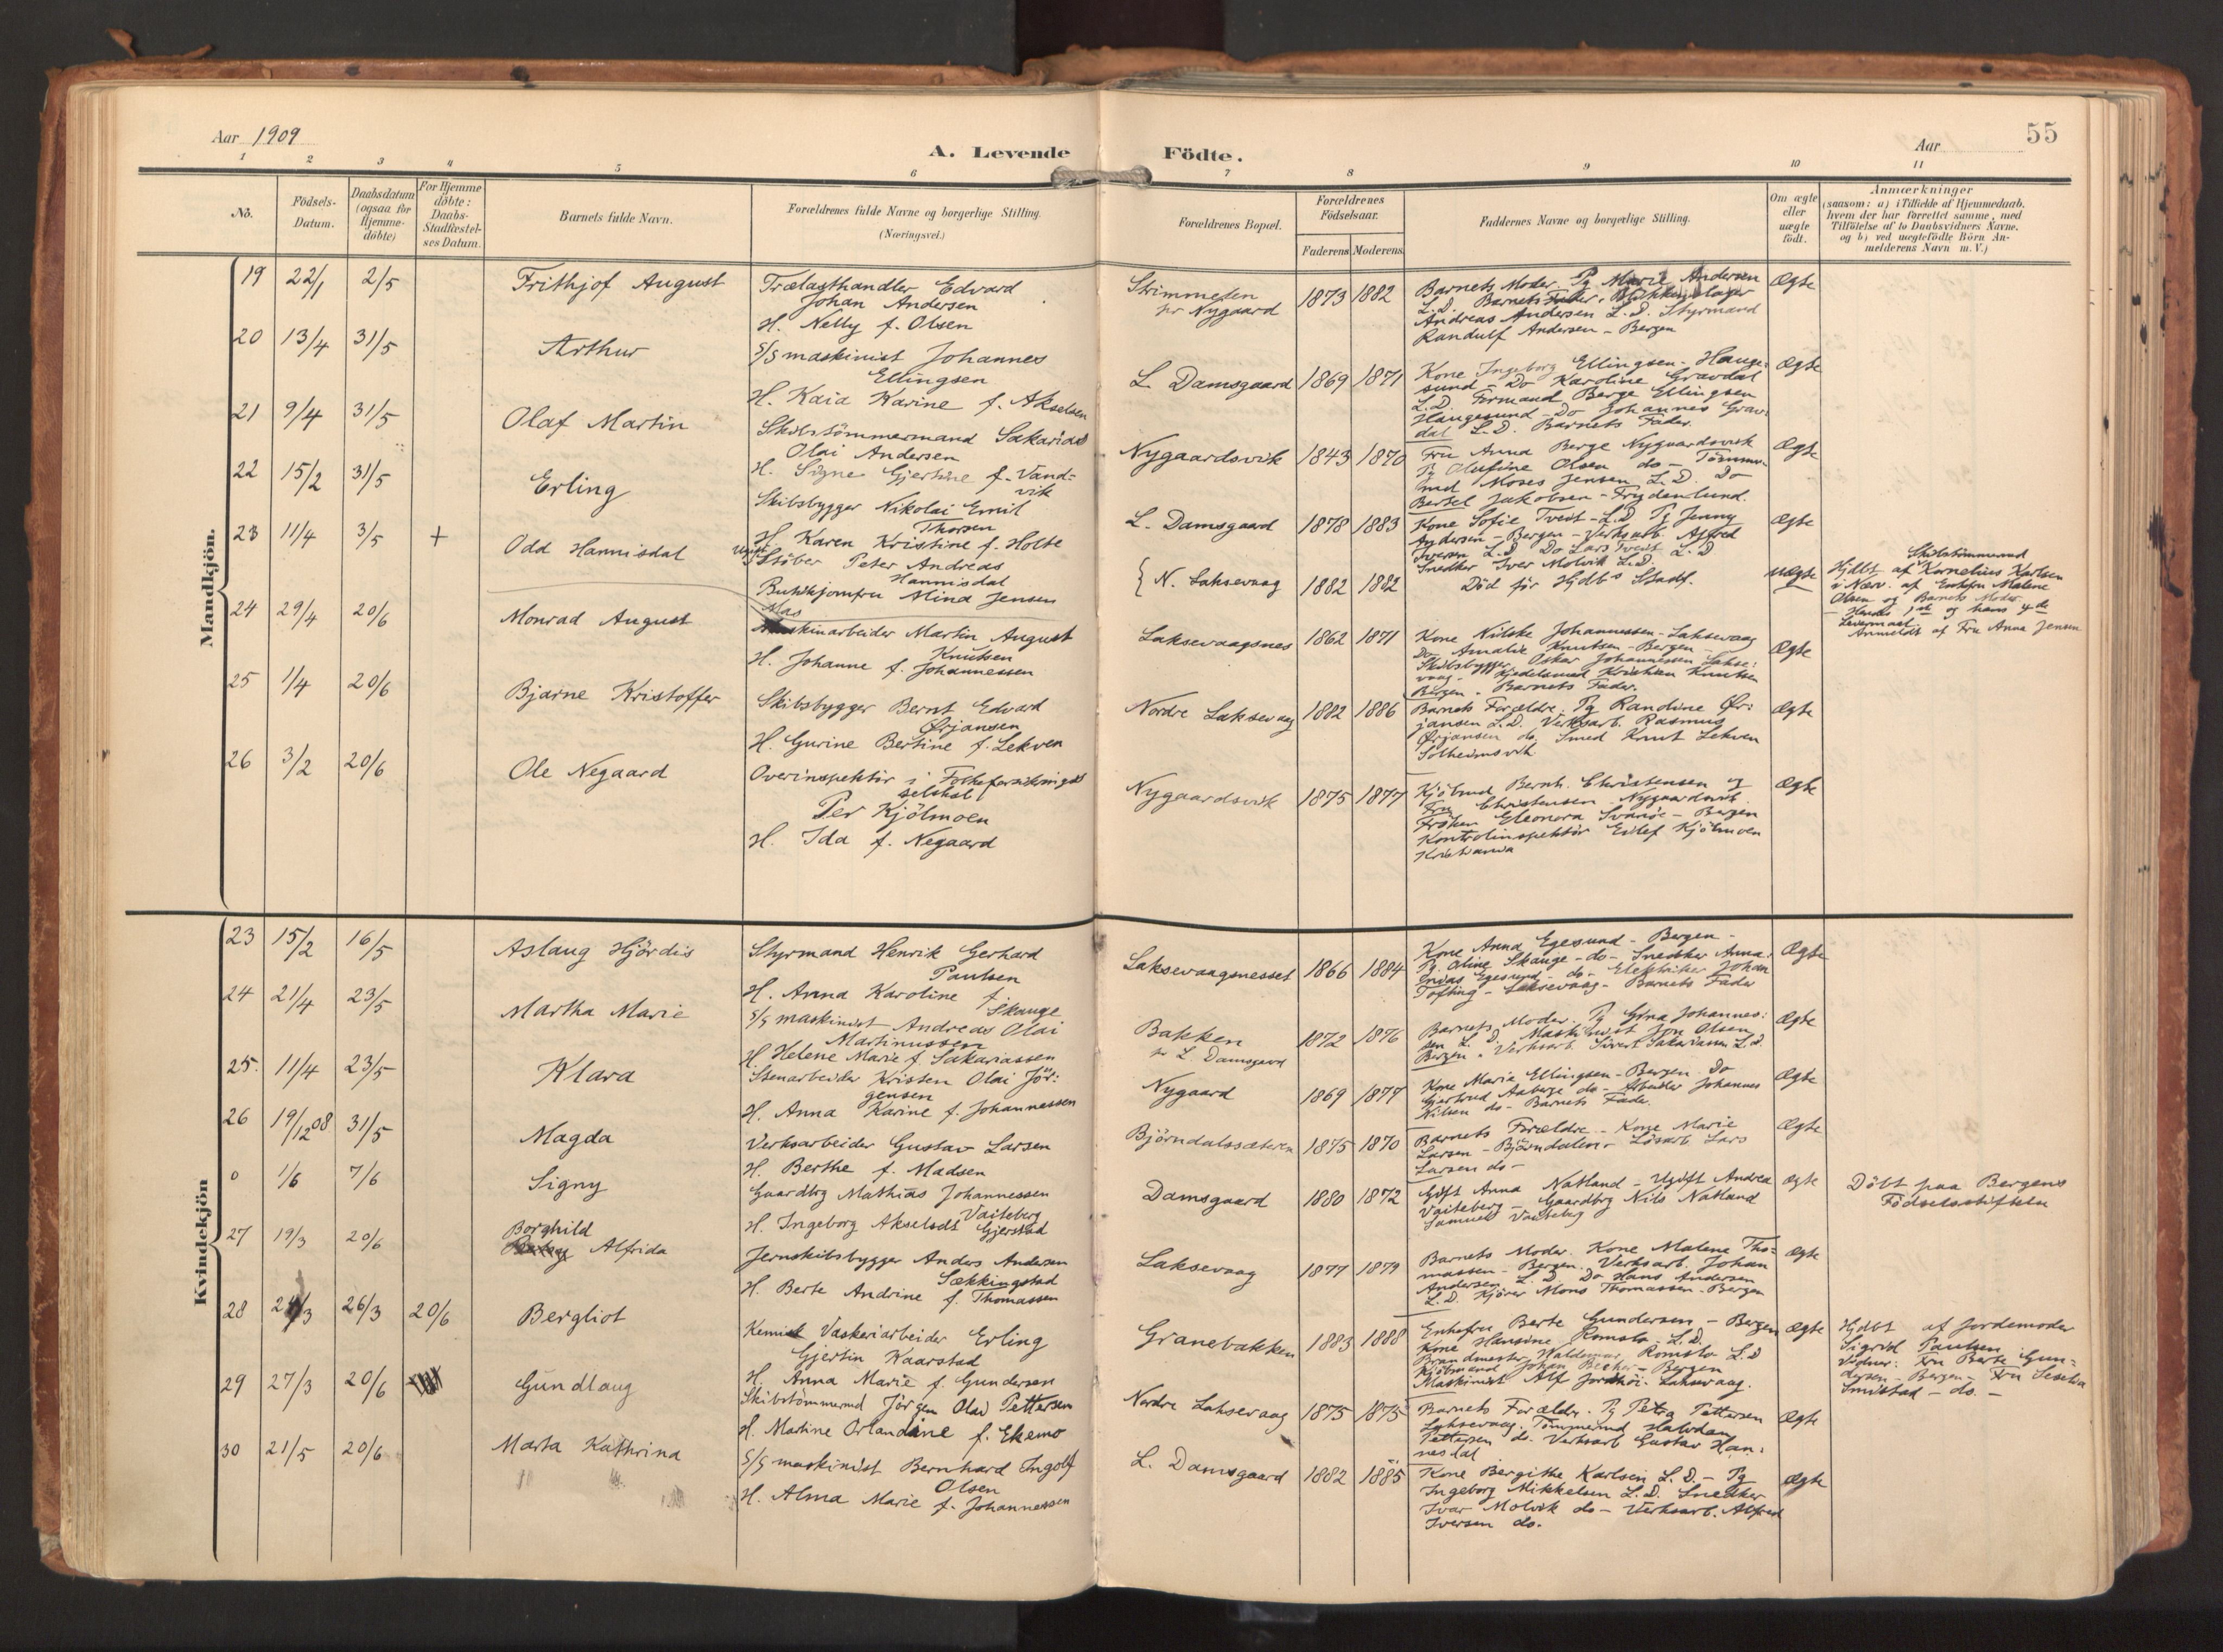 Aar 1909
A. Levende
Födte.
Aar
55
1 2 3 4 5 6 7 8 9 10 11
No.
Födsels-
Datum.
Daabsdatum
(ogsaa for
Hjemme-
döbte)
For Hjemme
döbte:
Daabs-
Stadfæstel-
ses Datum.
Barnets fulde Navn.
Forældrenes fulde Navne og borgerlige Stilling.
(Næringsvei.)
Forældrenes Bopæl.
Forældrenes
Födselsaar.
Faderens Moderens
Faddernes Navne og borgerlige Stilling.
Om ægte
eller
uægte
födt.
Anmærkninger
(saasom: a) i Tilfælde af Hjemmedaab,
hvem der har forrettet samme, med
Tilföielse af to Daabsvidners Navne.
og b) ved uægtefödte Börn An-
melderens Navn m.V.)
Mandkjön.
19 22/1 2/5 Frithjof August
Trælasthandler Edvard
Johan Andersen
H. Nelly f. Olsen
Strimmelen
pr Nygaard
1873 1882
Barnets Moder. Pg Marie Andersen
L.D. Barnets Fader. Blikkenslager
Andreas Andersen L.D. Styrmand
Randulf Andersen - Bergen
Ægte
20 13/4 31/5 Arthur
S/S maskinist Johannes
Ellingsen
H. Kaia Karine f. Akselsen
L. Damsgaard 1869 1871
Kone Ingeborg Ellingsen - Hauge:
sund - Do Karoline Gravdal
L.D Formand Berge Ellingsen
Haugesund - Do Johannes Grav:
dal L.D. Barnets Fader.
Ægte
21 9/4 31/5 Olaf Martin
Skibstömmermand Sakarias
Olai Andersen
H. Signe Gjertine f. Vand=
vik
Nygaardsvik 1843 1870
Fru Anna Berge Nygaardsvik
Pg Olufine Olsen do - Tömmer-
md Moses Jensen L.D. Do
Bertel Jakobsen - Frydenlund.
Ægte
22 15/2 31/5 Erling
Skibsbygger Nikolai Emil
Thorsen
H. Karen Kristine f. Holte
L. Damsgaard 1878 1883
Kone Sofie Tveit - L.D Pg Jenny
Andersen - Bergen - Verksarb. Alfred
Iversen L.D Do Lars Tveit L.D
Snedker Iver Molvik L.D.
Ægte
23 11/4 3/5 + Odd Hannisdal
Ugift
Støber Peter Andreas
Hannisdal
Butikkjomfru Alina Jensen
{ N. Laksevaag 1882 1882
Död för Hjdbs Stadf.
uægte
Skibstömmermd
Hjdbt af Kornelius Karlsen
i Nærv. af Enkefru Malene
Olsen og Barnets Moder
- Hendes 1ste og hans 4de
Leiermaal.
Anmeldt af Fru Anna Jensen
24 29/4 20/6 Monrad August
Mas
Maskinarbeider Martin August
Knutsen
H. Johanne f. Johannessen
Laksevaagsnes 1862 1871
Kone Nilske Johannessen - Laksevaag
Do Amalie Knutsen - Bergen -
Skibsbygger Oskar Johannessen Lakse:
vaag - Kjedelsmed Kristian Knutsen
Bergen. Barnets Fader.
Ægte
25 1/4 20/6 Bjarne Kristoffer
Skibsbygger Bernt Edvard
Ørjansen
H. Gurine Bertine f. Lekven
Nordre Laksevaag 1882 1886
Barnets Forældre. Pg Randine Ør:
jansen L.D. Verksarb. Rasmus
Ørjansen do. Smed Knut Lekven
Solheimsvik
Ægte
26 3/2 20/6 Ole Negaard
Overinspektör i Folkeforsikrings
selskab
Per Kjölmoen
H. Ida f. Negaard
Nygaardsvik 1875 1877
Kjöbmd Bernh. Christensen og
Fru Christensen Nygaardsvik.
Fröken Eleonora Svanöe - Bergen
Kontrolinspektör Eilef Kjölmoen
Kristiania
Ægte
Kvindekjön
23 15/2 16/5 Aslaug Hjördis
Styrmand Henrik Gerhard
Paulsen
H. Anna Karoline f.
Skauge
Laksevaagnesset 1866 1884
Kone Anna Egesund - Bergen -
Pg. Aline Skauge - do - Snedker Anna:
nias Egesund - do - Elektriker Johan
Tofting - Laksevaag - Barnets Fader
Ægte
24 21/4 23/5 Martha Marie
S/S maskinist Andreas Olai
Martinussen
H. Helene Marie f. Sakariassen
Bakken
pr L. Damsgaard
1872 1876
Barnets Moder. Pg Gina Johannes:
sen L.D. Maskinist Jon Olsen
Bergen. Verksarb. Sivert Sakariassen L.D.
Ægte
25. 11/4 23/5 Klara
Stenarbeider Kristen Olai Jör:
gensen
H. Anna Karine f. Johannessen
Nygaard 1869 1877
Kone Marie Ellingsen - Bergen. Do
Gjertrud Aaberge do - Arbeider Johannes
Nilsen do - Barnets Fader.
Ægte
26 19/12 08 31/5 Magda
Verksarbeider Gustav Larsen
H. Berthe f. Madsen
Björndalssæteren 1875 1870
Barnets Forældre - Kone Marie
Larsen - Björndalen - Lösarb Lars
Larsen do -
Ægte
0 1/6 7/6 Signy
Gaardbrg Mathias Johannessen
Vaiteberg
H. Ingeborg Akselsdt Gjerstad
Damsgaard 1880 1872
Gift Anna Natland - Ugift Andrea
Vaiteberg - Gaardbrg Nils Natland
Samuel Vaiteberg
Ægte
Döbt paa Bergens
Födselsstiftelse
27 19/3 20/6 Borghild
Alfrida
Jernskibsbygger Anders Andersen
Sækkingstad
H. Berte Andrine f. Thomassen
Laksevaag 1877 1879
Barnets Moder. Kone Malene Tho=
massen - Bergen. Verksarb. Johan
Andersen L.D. Do Hans Andersen
L.D. Kjörer Mons Thomassen - Bergen
Ægte
28 24/3 26/3 20/6 Bergliot
Kemisk Vaskeriarbeider Erling
Gjertin Kaarstad
H. Anna Marie f. Gundersen
Granebakken 1883 1888
Enkefru Berte Gundersen - Bergen
Kone Hansine Romslo - L.D.
Brandmester Waldemar Romslo L.D
Kjöbmand Johan Becker - Bergen
Maskinist Alf Jordhöi. Laksevaag.
Ægte
Hjdbt af Jordemoder
Sigrid Paulsen
Vidner: Fru Berte Gun=
dersen - Bergen - Fru Sesselia
Smistad - do. -
29 27/3 20/6 Gundlaug
Skibstömmermd Jörgen Olai Pettersen
H. Martine Orlandine f. Ekemo
Nordre Laksevaag 1875 1875
Barnets Forældr. Pg Petra Pettersen
Laksevaag. Tömmermd Halvdan
Pettersen do. Verksarb Gustav Han:
nesdal
Ægte
30 21/5 20/6 Marta Kathrina
S/S maskinist Bernhard Ingolf
Olsen
H. Alma Marie f. Johannessen
L. Damsgaard 1882 1885
Kone Bergithe Karlsen L.D. - Pg
Ingeborg Mikkelsen L.D. Snedker
Ivar Molvik do - Verksarb. Alfred
Iversen do.
Ægte